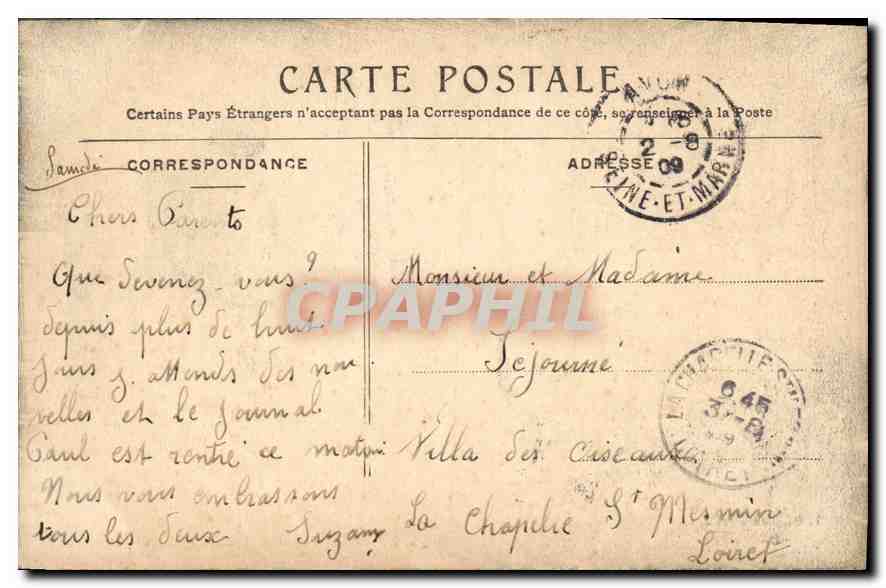 CARTE POSTALE
Certains Pays Étrangers n'acceptant pas la Correspondance de ce côté, se renseigner à la Poste
CORRESPONDANCE
ADRESSE
AVON
2 -8
09
SEINE-ET-MARNE
Samedi
Chers Parents
Que devenez-vous?
depuis plus de huit
jours j. attends des nou
velles et le journal
Paul est rentré ce matin
Nous vous embrassons
tous les deux Suzany
Monsieur et Madame
Sejourné
Villa des Oiseaux
La Chapelle St Mesmin
Loiret
LA CHAPELLE
6 45
3 -8
CPAPHIL